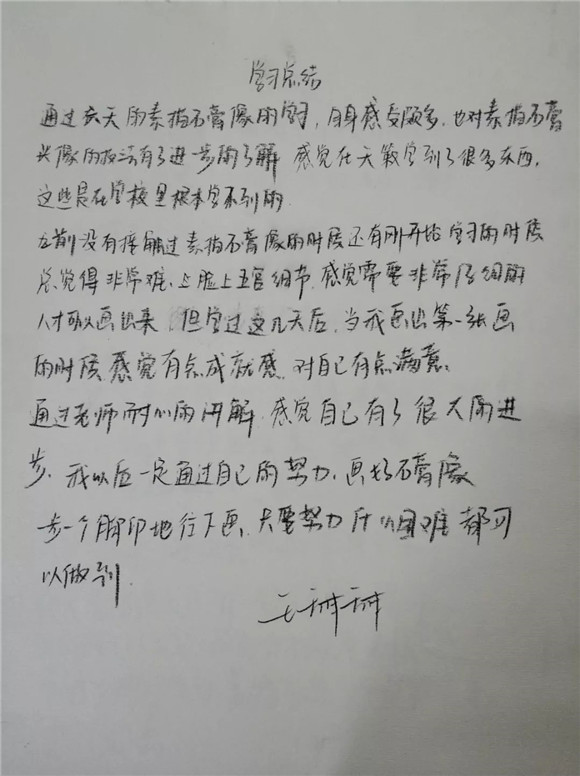 学习总结
通过六天的素描石膏像的学习，自身感受颇多，也对素描石膏
头像的技法有了进一步的了解 感觉在天籁学到了很多东西，
这些是在学校里根本学不到的
在前没有接触过素描石膏像的时候还有刚开始学习的时候
总觉得非常难、上脸上五官细节，感觉需要非常仔细
人才可以画出来 但学过这几天后，当我画出第一张画
的时候，感觉有点成就感，对自己有点满意。
通过老师耐心的讲解，感觉自己有了很大的进
步，我以后一定通过自己的努力，画好石膏像
步一个脚印地往下画，只要努力 什么困难都可
以做到